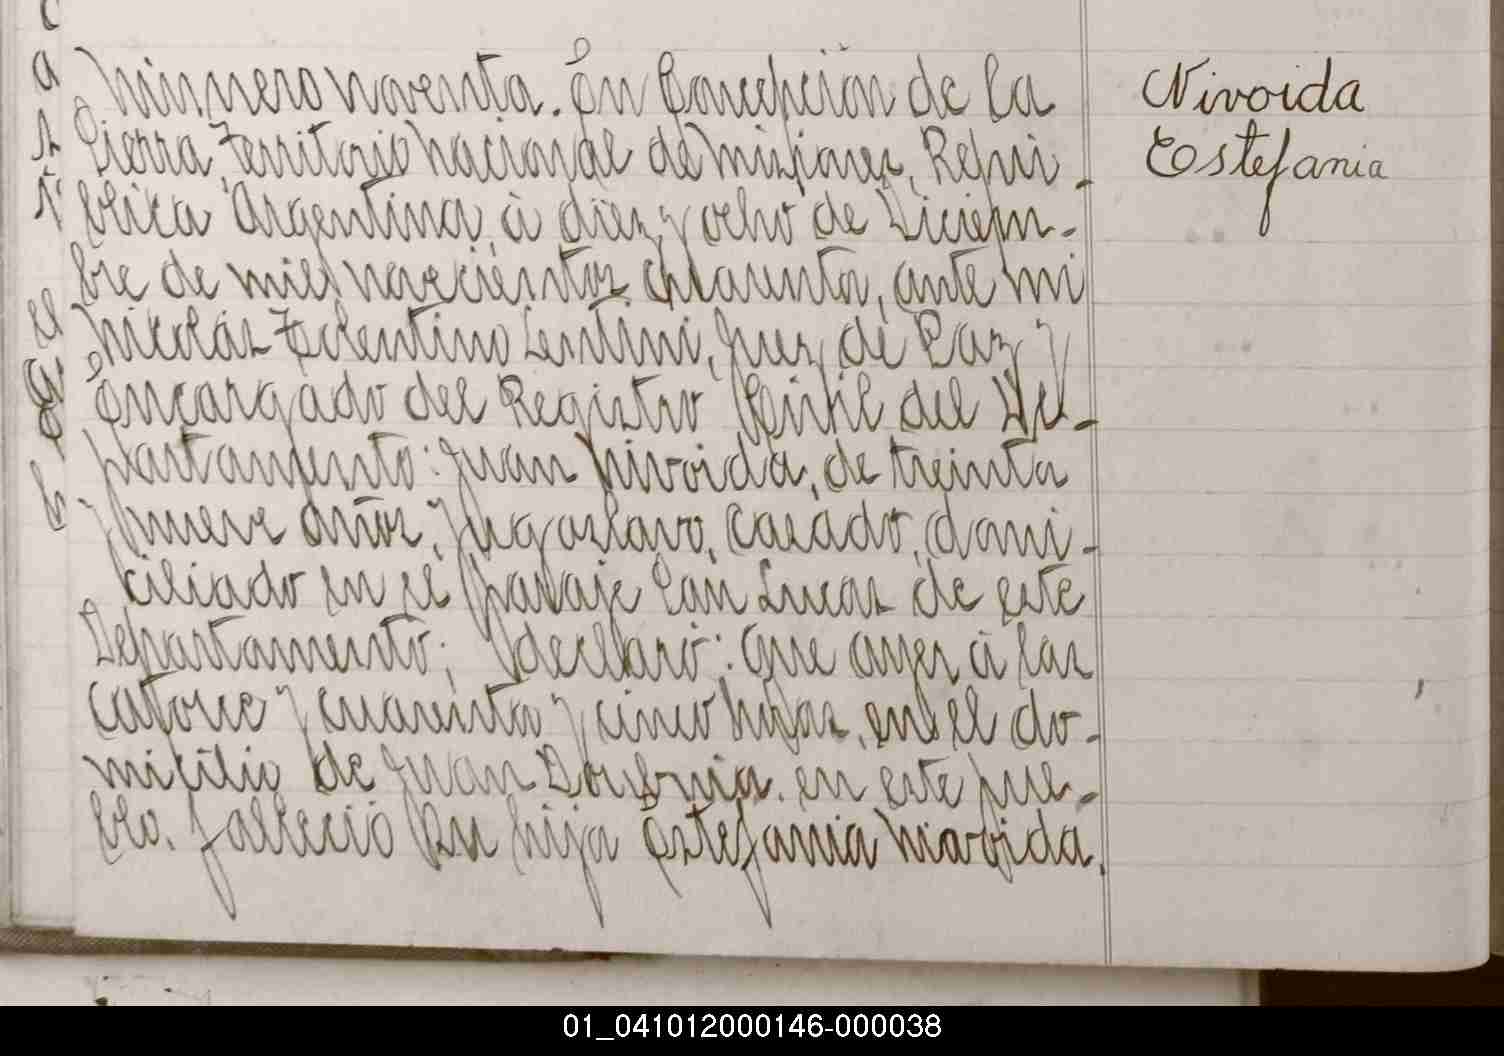 Número noventa. En Concepción de la
Sierra, Territorio Nacional de Misiones, Repú-
blica Argentina, á diez y ocho de Diciem-
bre de mil novecientos cuarenta, ante mi
Nicolás Tolentino Lentini, Juez de Paz y
Encargado del Registro Civil del De-
partamento: Juan Nivoida, de treinta
y nueve años, Yugoslavo, casado, domi-
ciliado en el paraje San Lucas de este
Departamento; declaró: Que ayer á las
catorce y cuarenta y cinco horas, en el do-
micilio de Juan en este pue-
blo, falleció su hija Estefania Nivoida
Nivoida
Estefania
01_041012000146-000038